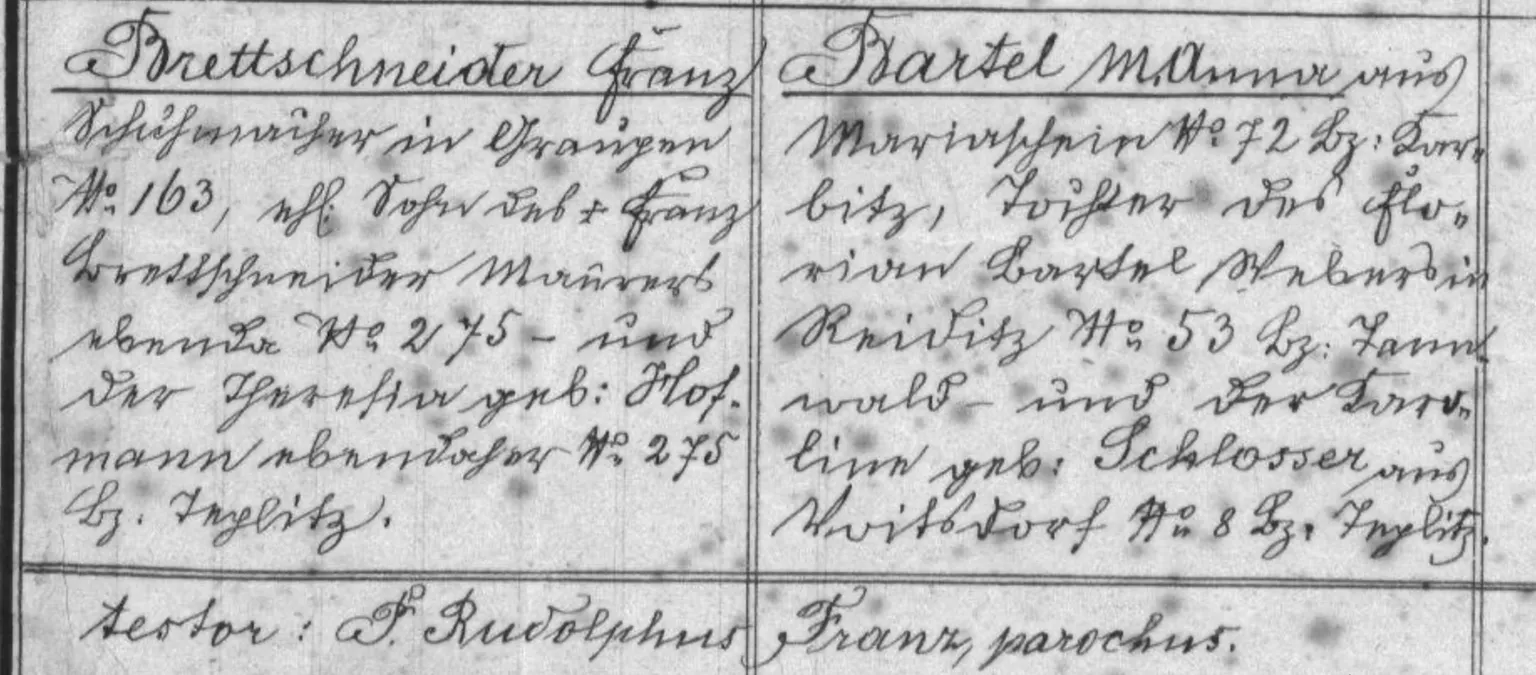 Brettschneider Franz
Schuhmacher in Graupen
No. 163, ehl. Sohn des † Franz
Brettschneider Maurers
ebenda No 275 – und
der Theresia geb: Hof-
mann ebendaher No 275
Bz. Teplitz.
Bartel M. Anna aus
Mariaschein No 72 Bz: Kar-
bitz, Tochter des Flo-
rian Bartel Webers in
Reiditz No 53 Bz: Tann-
wald – und der Karo-
line geb: Schlosser aus
Voitsdorf No 8 Bz. Teplitz.
testor: P. Rudolphus Franz, parochus.